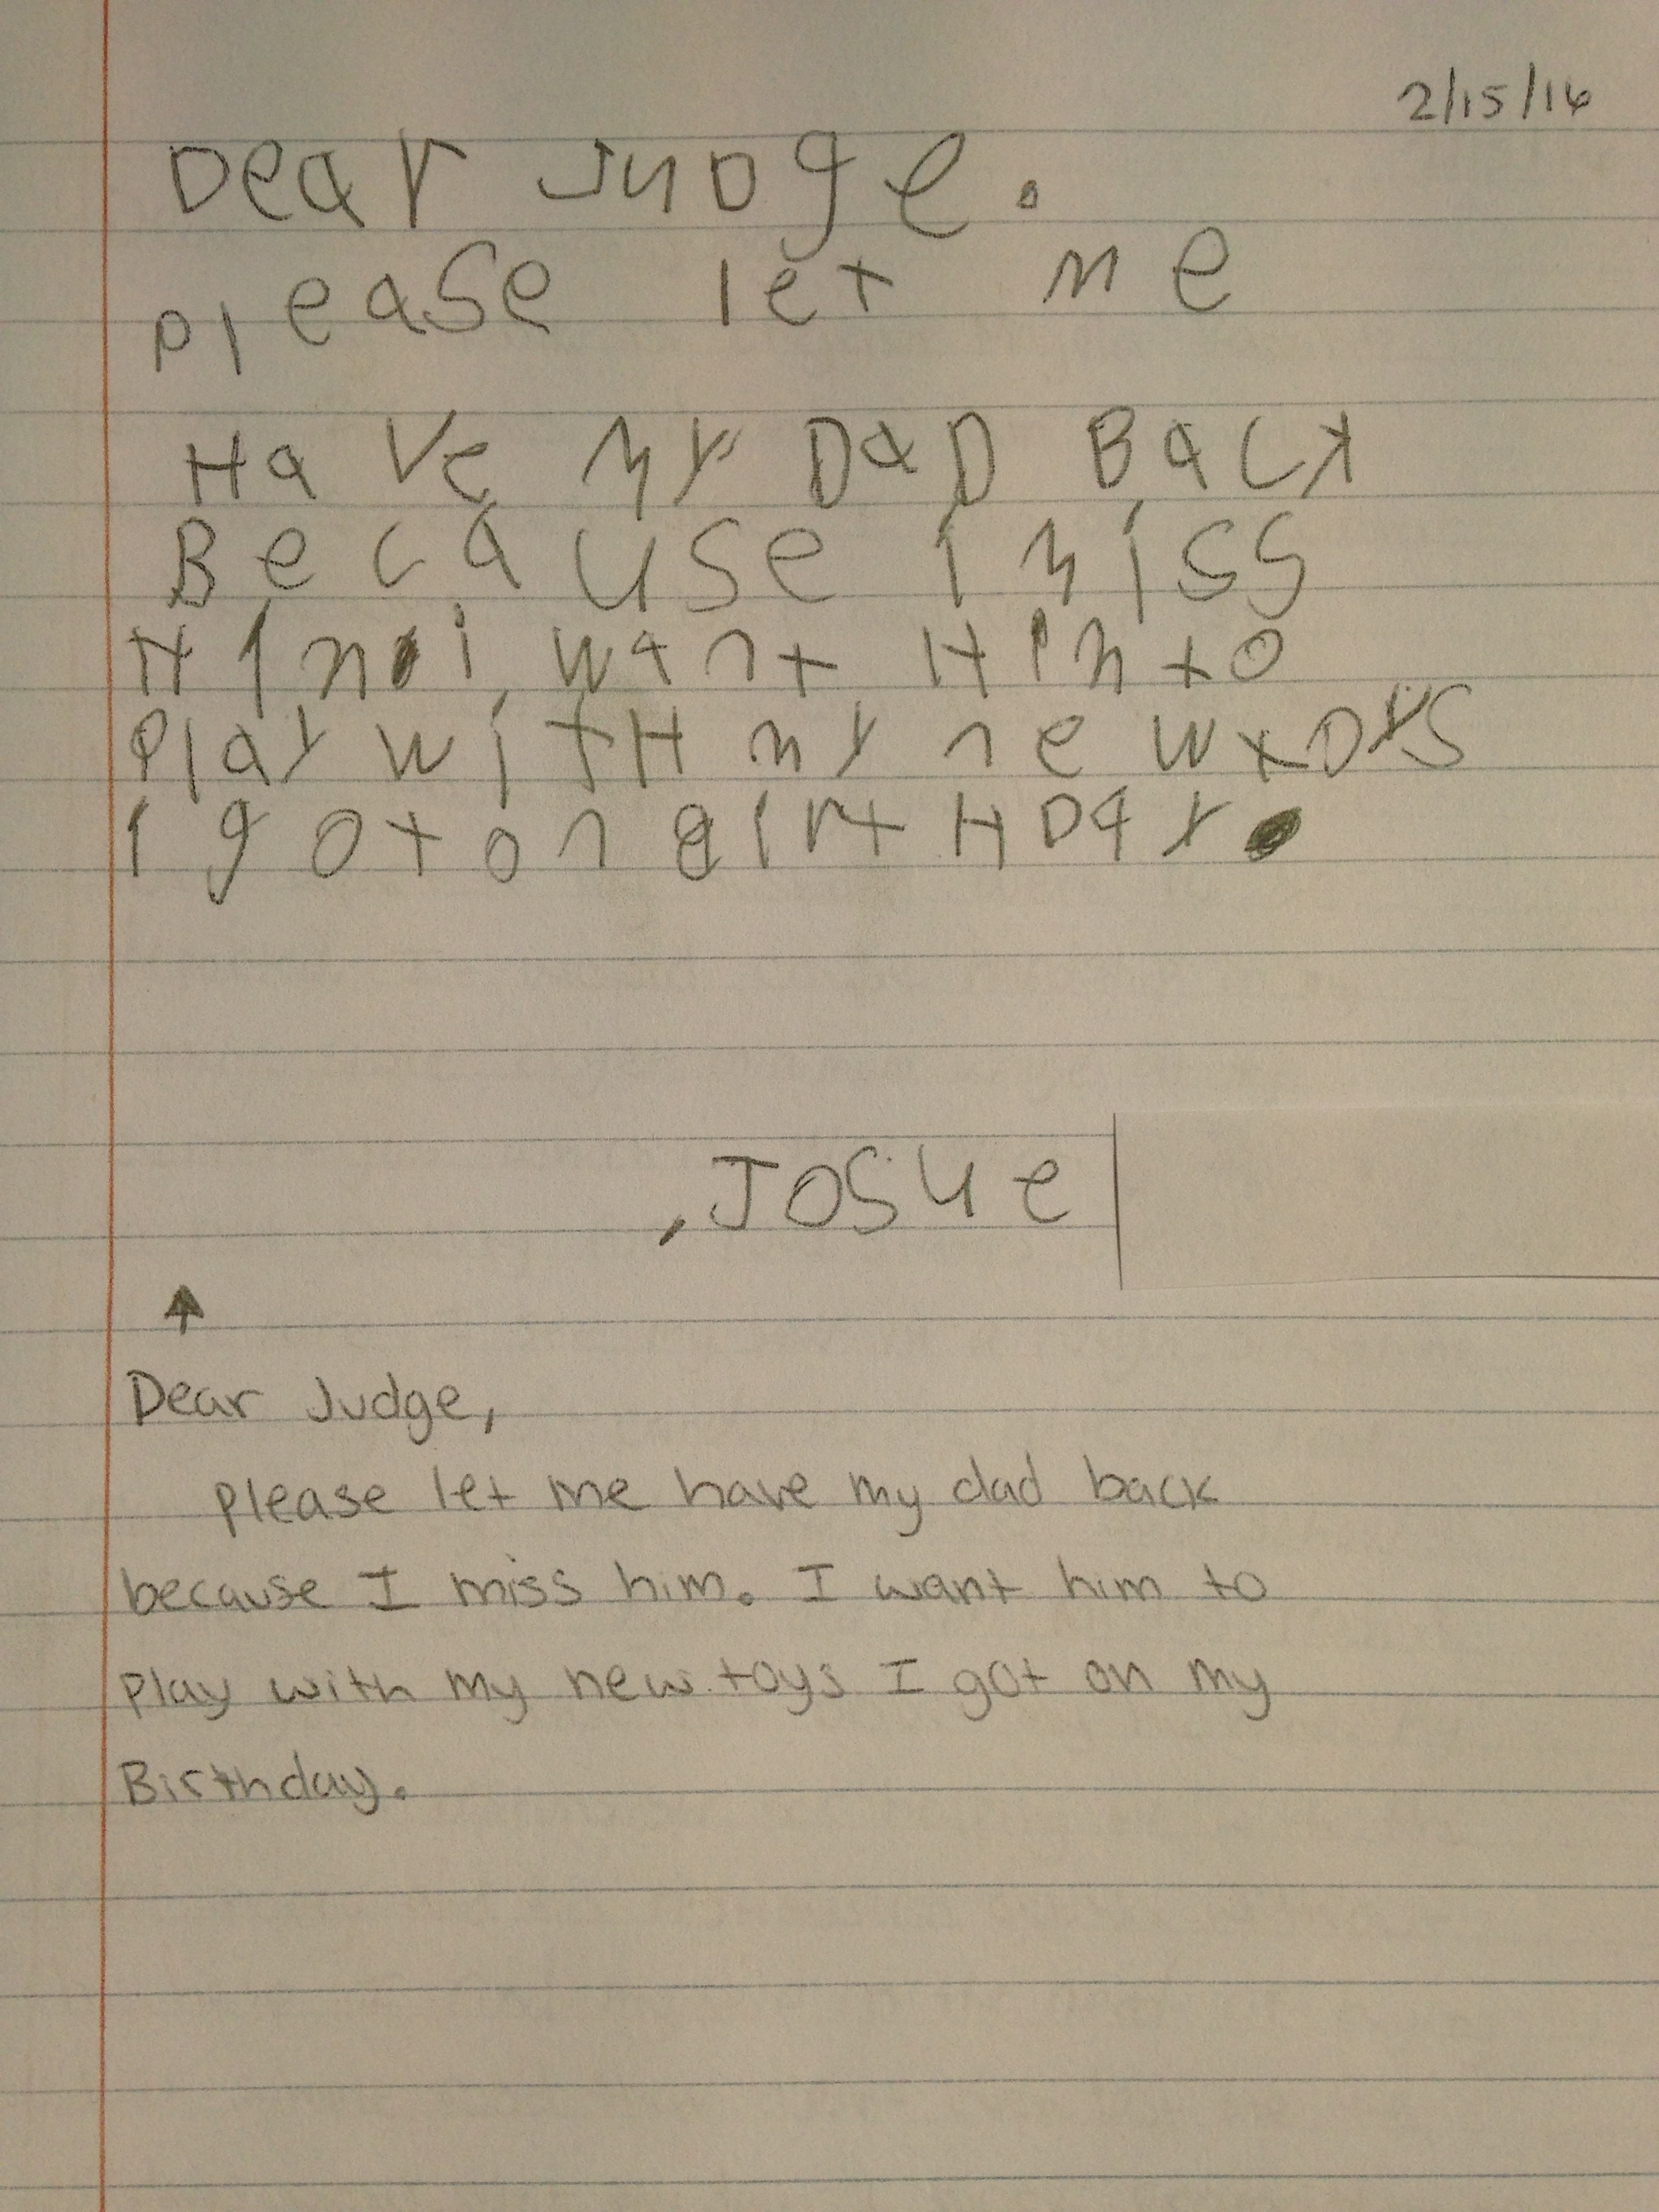 2/15/16
Dear Judge.
please let me
Have my DaD Back
Because i miss
Him i want Him to
Play witH my new toys
i got on BirtHDay.
,Josue
Dear Judge,
please let me have my dad back
because I miss him. I want him to
play with my new toys I got on my
Birthday.